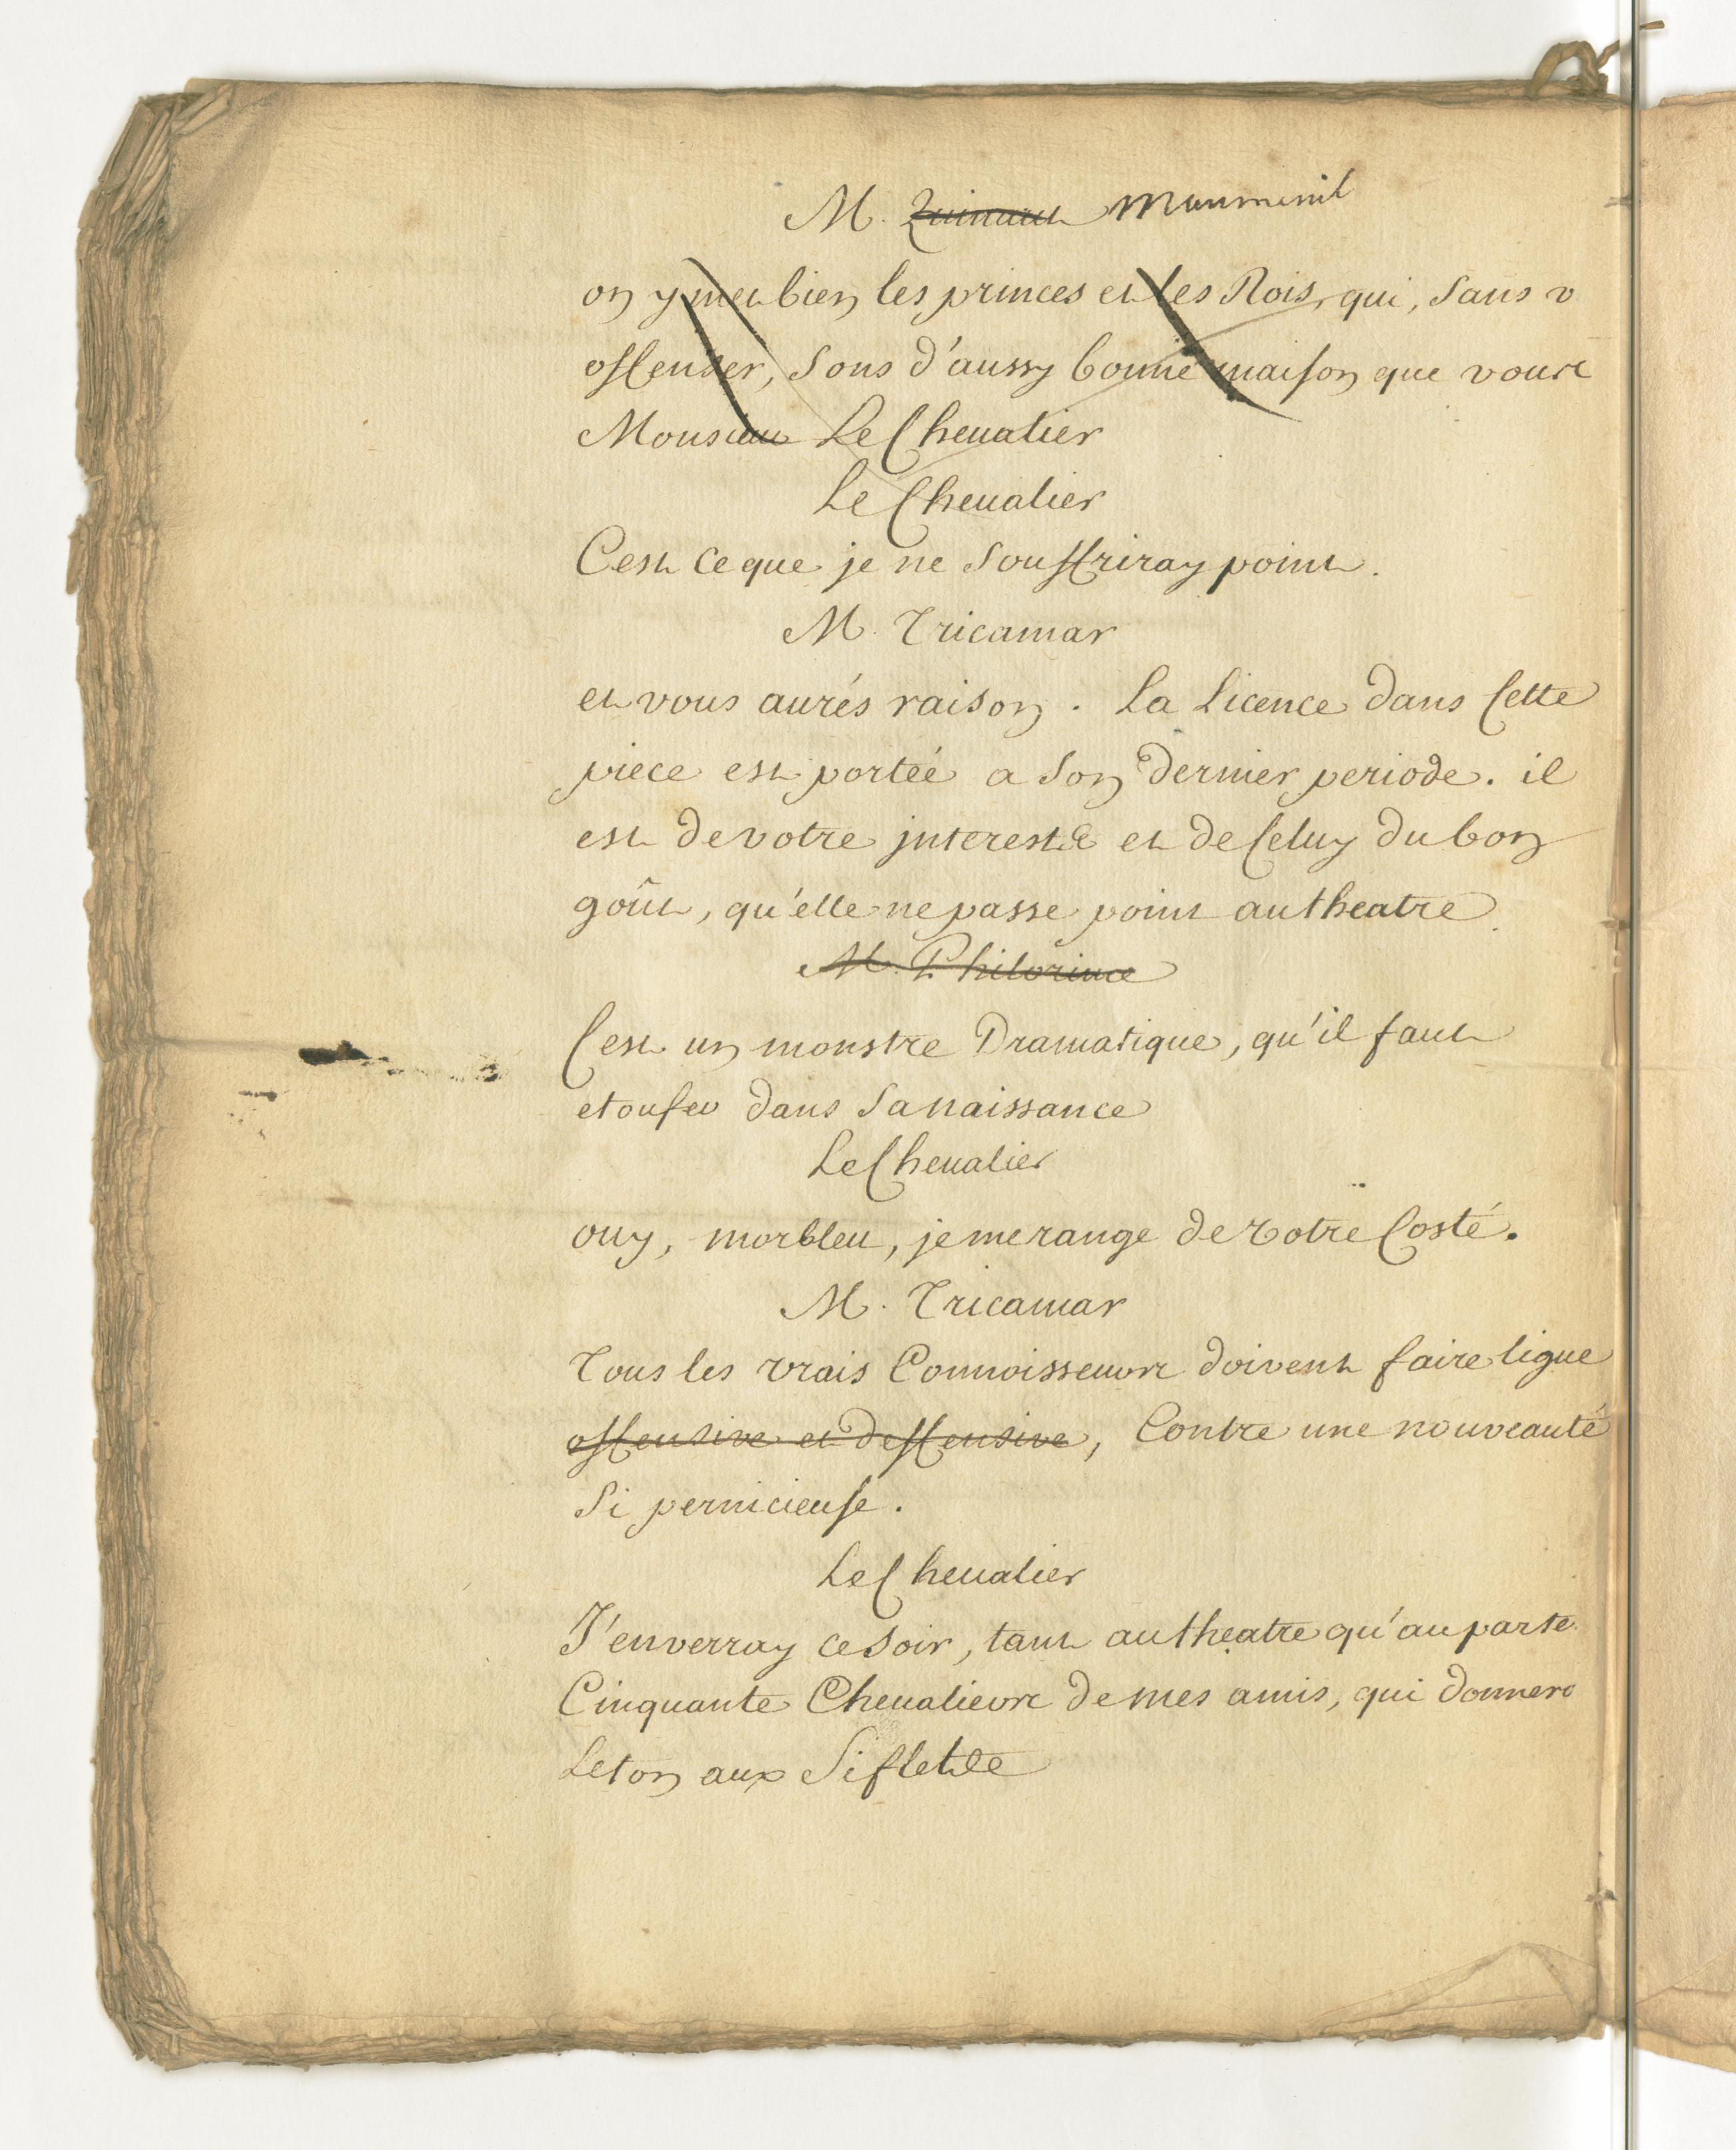 M. Quinault Monmenil
on y met bien les princes et les Rois, qui, sans v
offenser, sons d'aussy bonne maison que vous
Monsieur Le Chevalier
Le Chevalier
C'est ce que je ne souffriray point.
M. Tricamar
et vous aurés raison. La Licence dans Cette
piece est portée a son dernier periode. il
est de votre interest et de Celuy du bon
goût, qu'elle ne passe point au theatre
M. Philorince
C'est un monstre Dramatique, qu'il faut
etoufer dans sa naissance
Le Chevalier
ouy, morbleu, je me range de votre Costé.
M. Tricamar
Tous les vrais Connoisseurs doivent faire ligue
offensive et deffensive, Contre une nouveauté
si pernicieuse.
Le Chevalier
J'enverray ce soir, tant au theatre qu'au parte
Cinquante Chevaliers de mes amis, qui donnero
Le ton aux Siflets